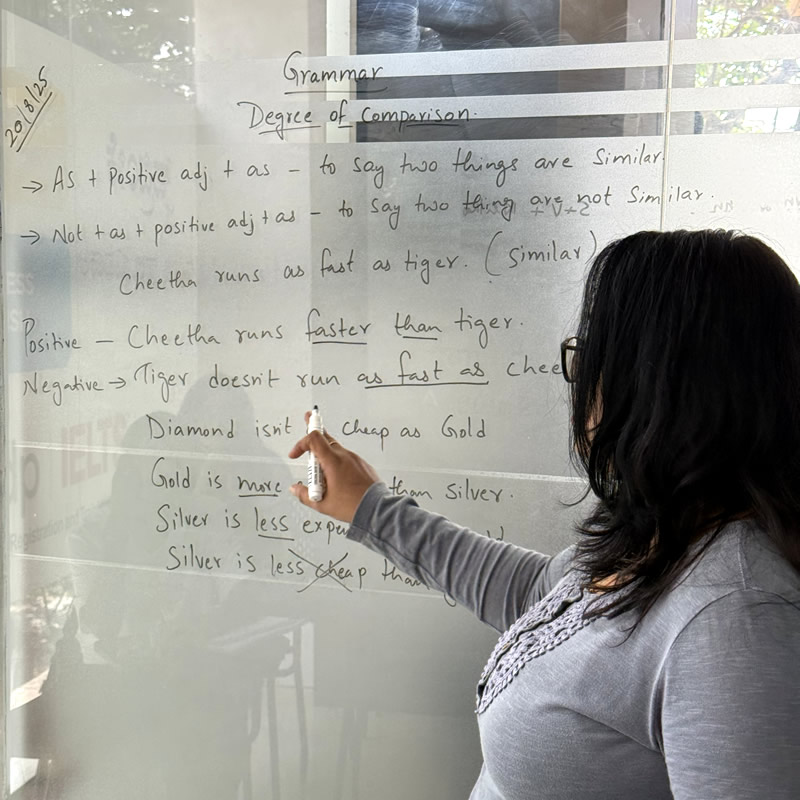 20/8/25
Grammar
Degree of comparison.
→ As + positive adj + as – to say two things are similar.
→ Not + as + positive adj + as – to say two thing are not similar.
Cheetha runs as fast as tiger. (similar)
Positive – Cheetha runs faster than tiger.
Negative → Tiger doesn't run as fast as chee
Diamond isn't cheap as Gold
Gold is more than silver.
Silver is less expe
Silver is less cheap than
IELT